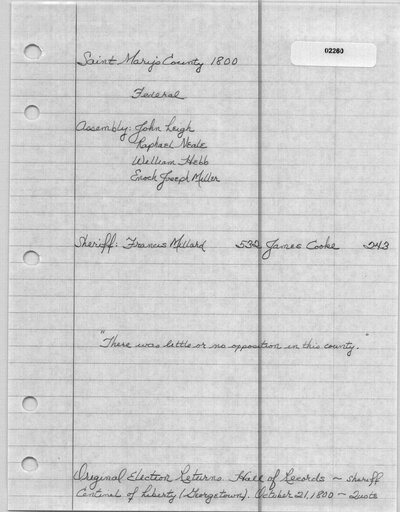 02260
Saint Mary's County 1800
Federal
Assembly: John Leigh
Raphael Neale
William Hebb
Enoch Joseph Miller
Sheriff: Francis Millard 532 James Cooke 243
"There was little or no opposition in this county."
Original Election Returns. Hall of Records ~ Sheriff
Centinel of Liberty (Georgetown). October 21, 1800 ~ Quote